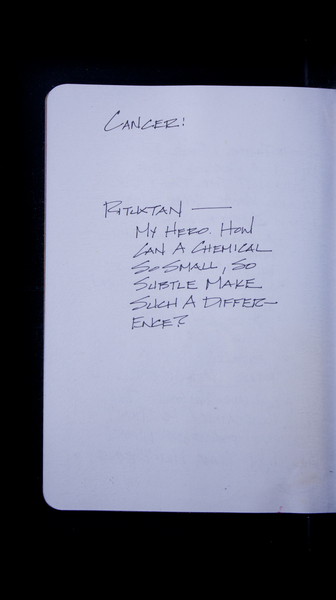 CANCER:
RITUXTAN —
MY HERO. HOW
CAN A CHEMICAL
SO SMALL, SO
SUBTLE MAKE
SUCH A DIFFER-
ENCE?